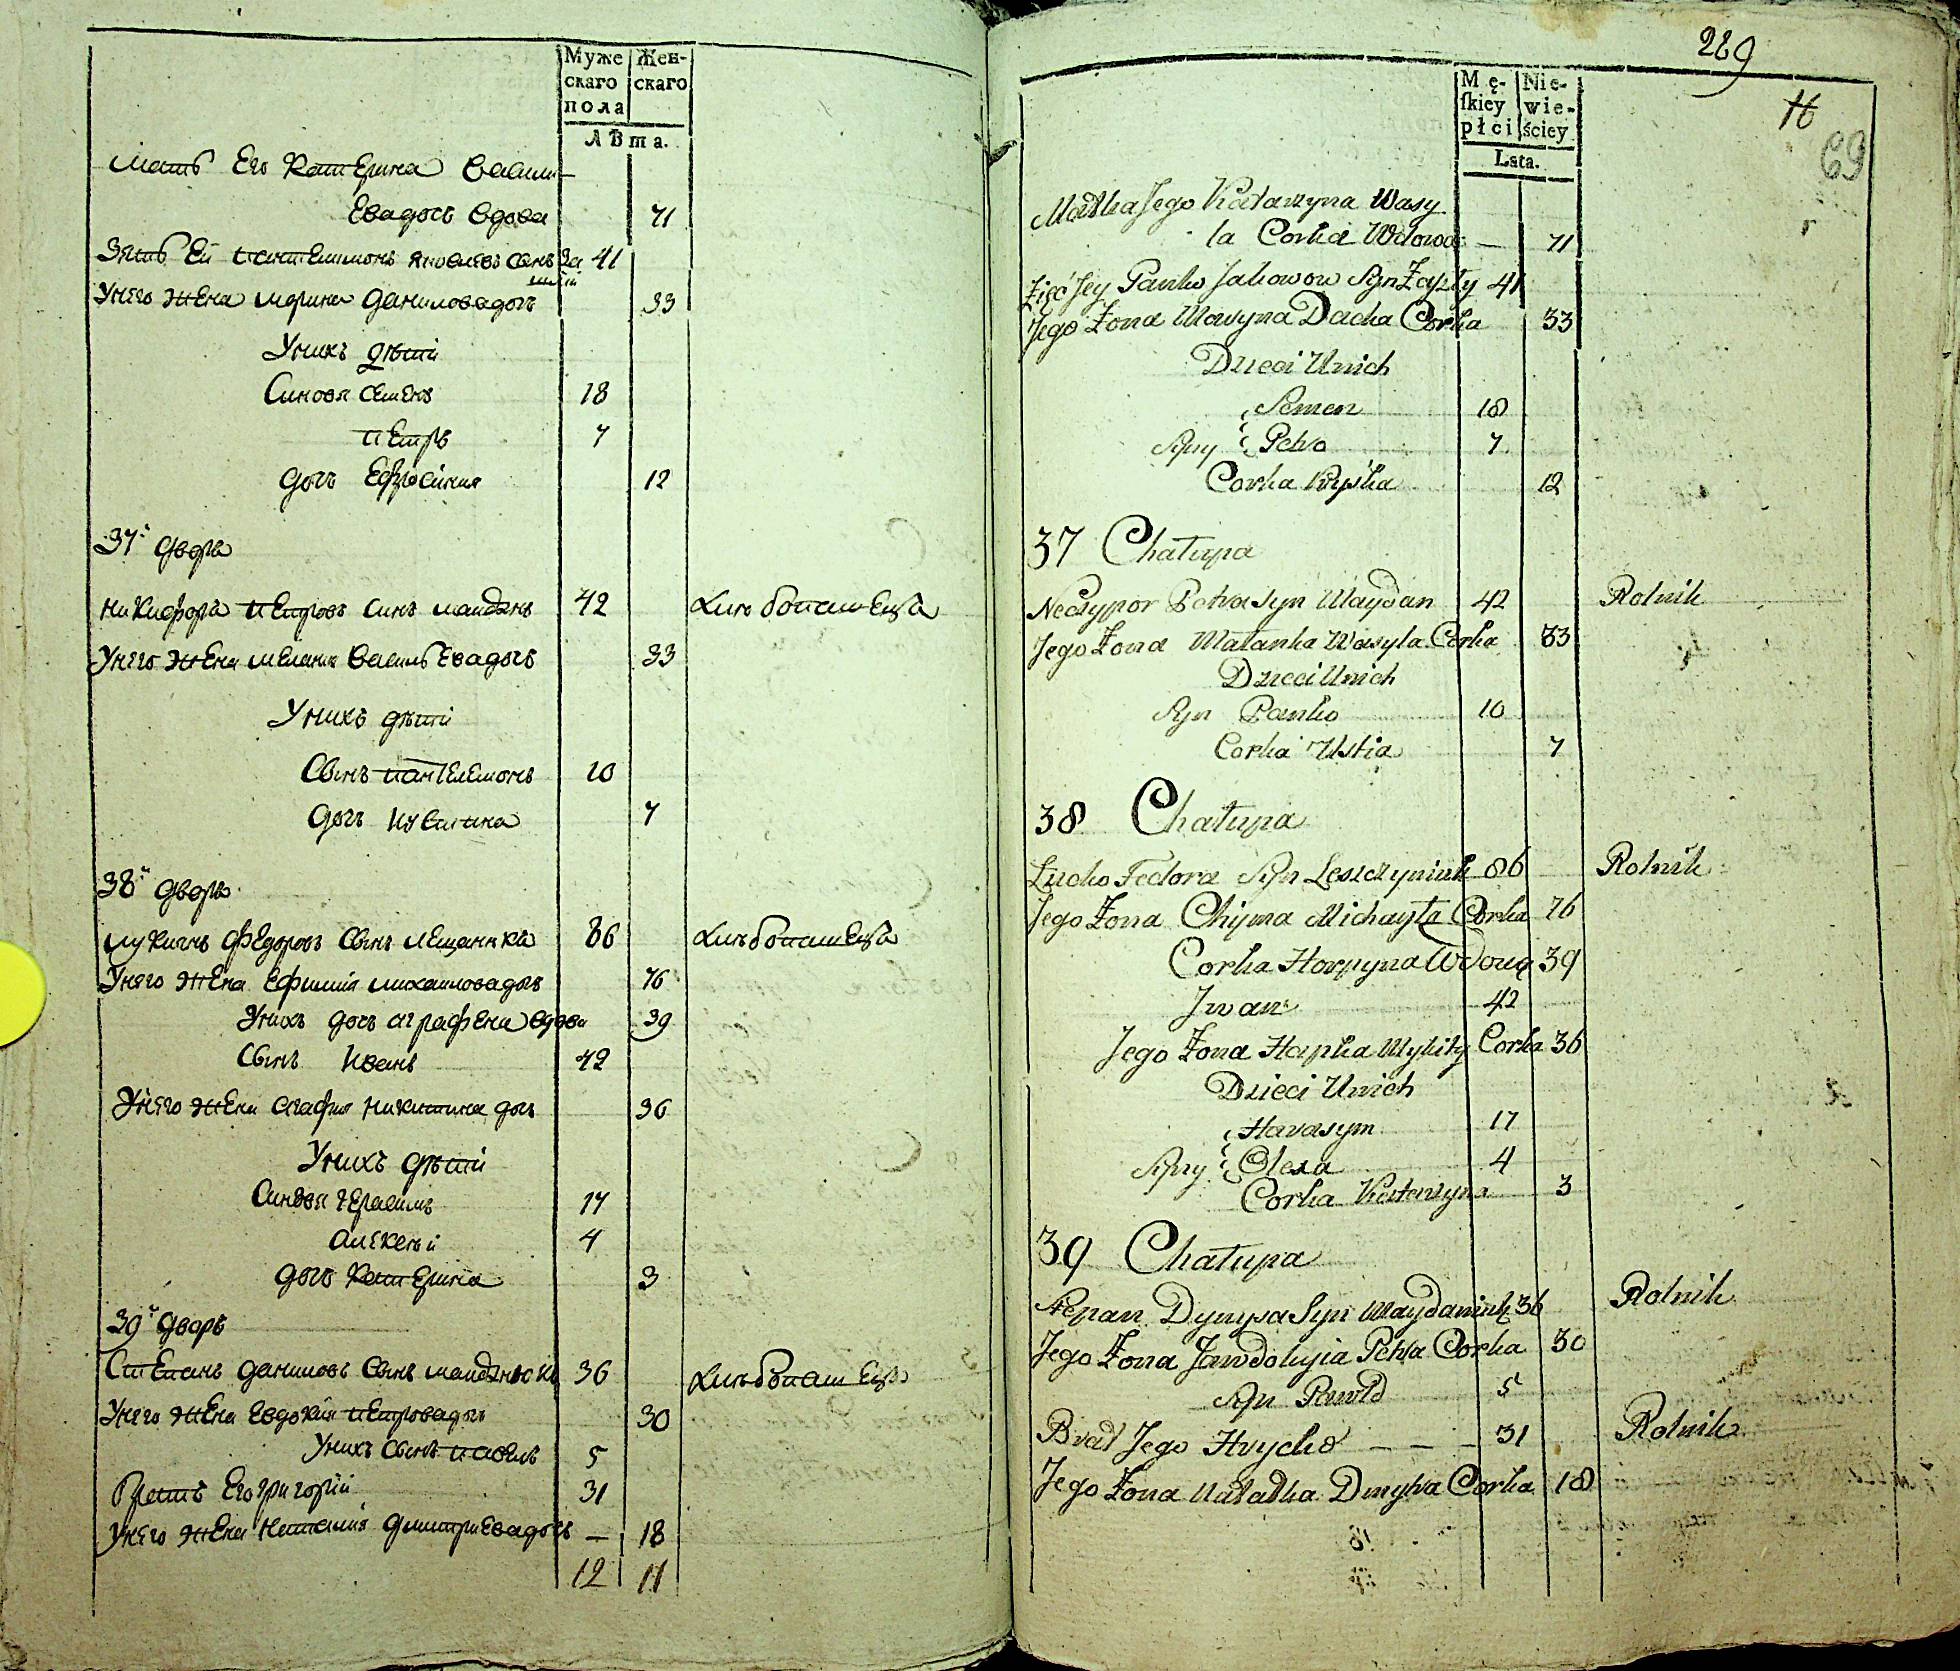 Муже
скаго
пола
Жен-
скаго
Лѣта.
Мать Его Катерина Васили
Евадочь вдова 71
Зять Ей Пантелимонъ Яковлевъ сынъ 41
Унего жена Марина Даниловадочь 33
Унихъ дѣти
Синовя Семенъ 18
Петръ 7
дочь Ефросиния 12
37й дворъ
Никифоръ Петровъ синъ Майданъ 42
Унего жена Мелания Василь Евадочь 33
Унихъ дѣти
Сынъ Пантелемонъ 10
дочь Иустина 7
38й дворъ
Лукиянъ Федоровъ сынъ 86
Унего жена Ефимия Михаиловадочь 76
Унихъ дочь Аграфена вдова 39
Сынъ Иванъ 42
Унего жена Агафия Никитина дочь 36
Унихъ дѣти
Синовя Герасимъ 17
Алексѣй 4
дочь Катерина 3
39й дворъ
Степанъ Даниловъ сынъ 36
Унего жена Евдокия Петровадочь 30
Унихъ сынъ Павелъ 5
Братъ Его Григорий 31
Унего жена Наталия Дмитриевадочь — 18
12 11
289
69
Mę-
ſkiey
płci
Nie-
wie-
ściey
Lata.
Matka Jego Katarzyna Wasy
la Corka Wdowa — 71
Zięć Jey Panko Jakowow Syn Zapity 41
Jego Zona Maryna Dacka Corka 33
Dzieci Unich
Semen 18
Syny Petro 7
Corka Pryska 12
37 Chałupa
Neczypor Petra Syn Maydan 42 Rolnik
Jego Zona Małanka Wasyla Corka 33
Dzieci Unich
Syn Panko 10
Corka Ustia 7
38 Chałupa
Lucko Fedora Syn Leszczyniuk 86 Rolnik
Jego Zona Chijma Michayła Corka 76
Corka Horpyna Wdową 39
Jwan 42
Jego Zona Hapka Mykity Corka 36
Dzieci Unich
Harasym 17
Syny Olexa 4
Corka Katarzyna 3
39 Chałupa
Stepan Dynysa Syn Maydaniuk 36 Rolnik
Jego Zona Jawdokyia Petra Corka 30
Syn Pawło 5
Brat Jego Hrycko — — — 31 Rolnik
Jego Zona Natałka Dmytra Corka 18